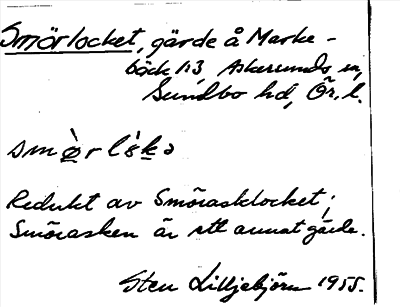 Smörlocket, gärde å Marke-
bäck 1:3, Askersunds sn,
Sundbo hd, Ör. l.
smø̀rlòkə
Redukt av Smörasklocket;
Smörasken är ett annat gärde.
Sten Lilljebjörn 1955.